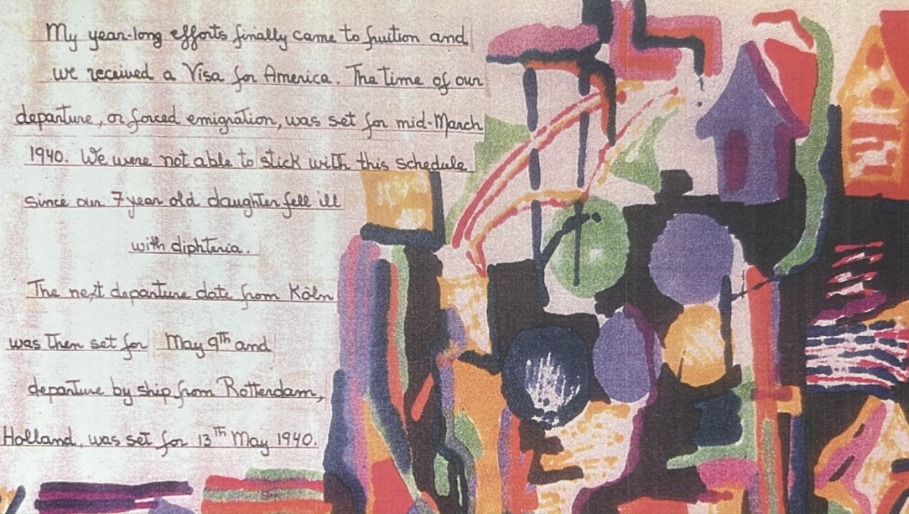 My year-long efforts finally came to fruition and
we received a Visa for America. The time of our
departure, or forced emigration, was set for mid-March
1940. We were not able to stick with this schedule
since our 7 year old daughter fell ill
with diphteria.
The next departure date from Köln
was then set for May 9TH and
departure by ship from Rotterdam,
Holland, was set for 13TH May 1940.